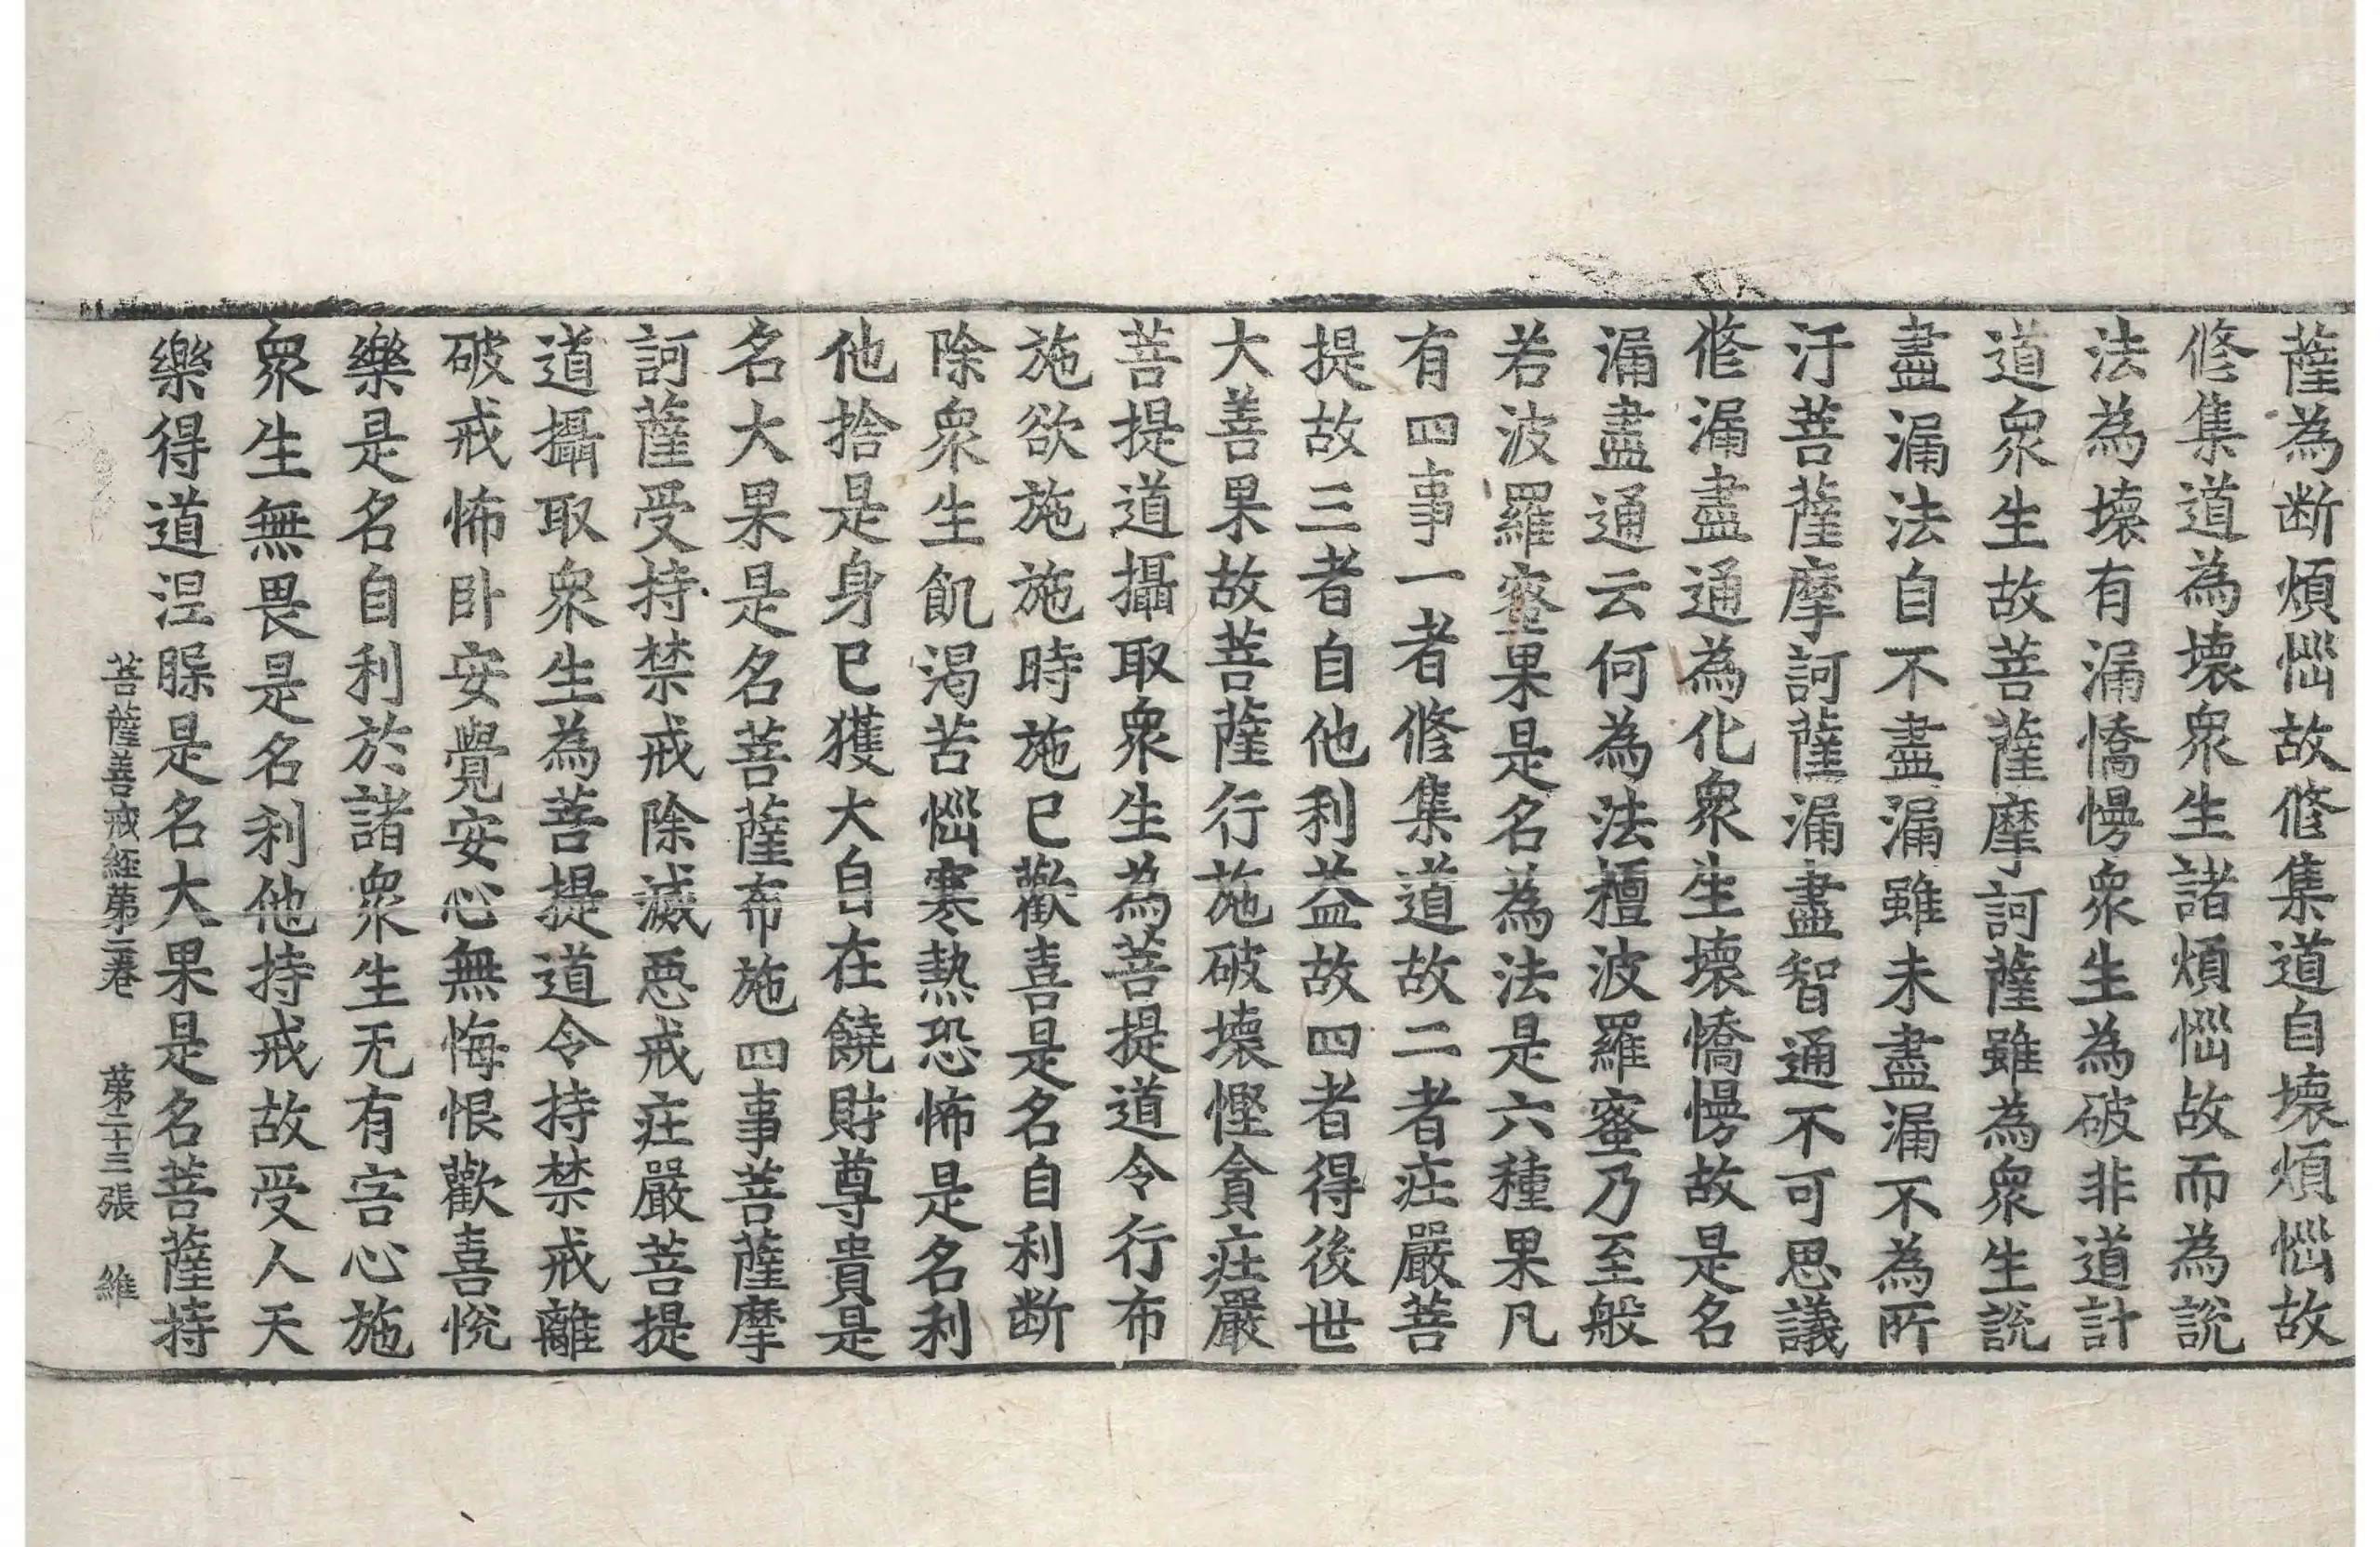 薩為断煩惱故修集道自壞煩惱故
修集道為壞衆生諸煩惱故而為說
法為壞有漏憍慢衆生為破非道計
道衆生故菩薩摩訶薩雖為衆生說
盡漏法自不盡漏雖未盡漏不為所
汙菩薩摩訶薩漏盡智通不可思議
修漏盡通為化衆生壞憍慢故是名
漏盡通云何為法檀波羅蜜乃至般
若波羅蜜果是名為法是六種果凡
有四事一者修集道故二者庄嚴菩
提故三者自他利益故四者得後世
大善果故菩薩行施破壞慳貪庄嚴
菩提道攝取衆生為菩提道令行布
施欲施施時施已歡喜是名自利断
除衆生飢渴苦惱寒熱恐怖是名利
他捨是身已獲大自在饒財尊貴是
名大果是名菩薩布施四事菩薩摩
訶薩受持禁戒除滅惡戒庄嚴菩提
道攝取衆生為菩提道令持禁戒離
破戒怖卧安覺安心無悔恨歡喜悅
樂是名自利於諸衆生无有害心施
衆生無畏是名利他持戒故受人天
樂得道涅槃是名大果是名菩薩持
菩薩善戒経苐二卷　苐二十三張　維